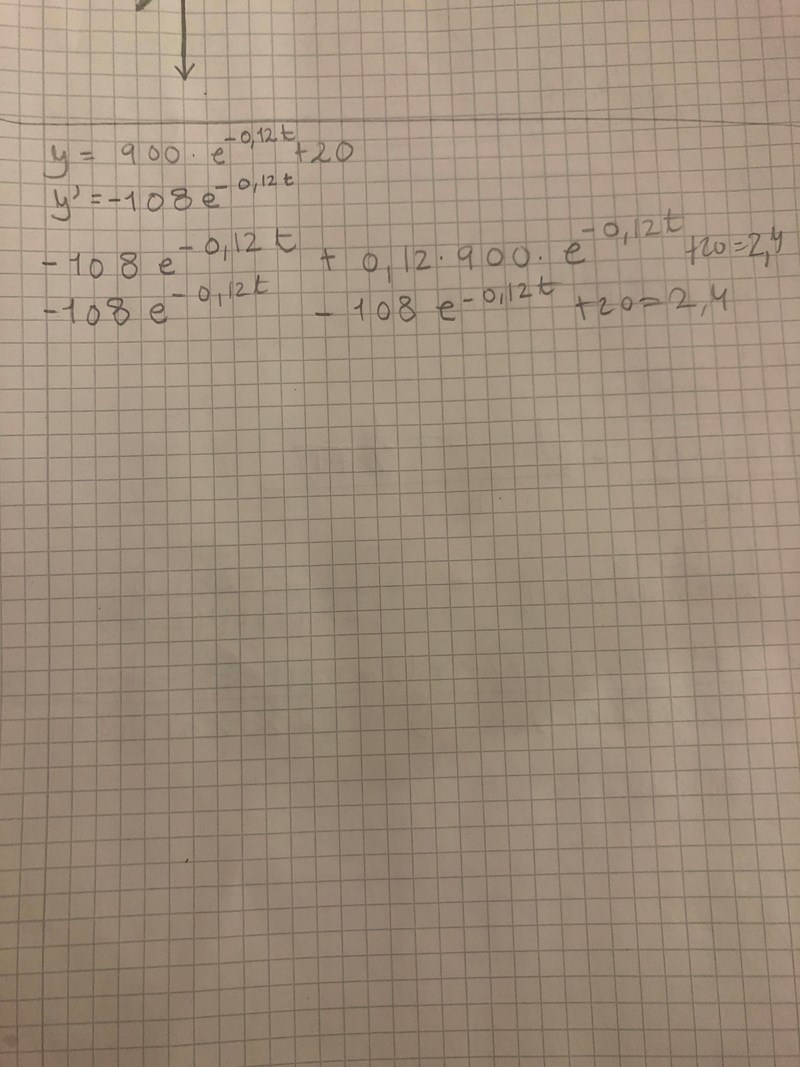 y = 900 · e^-0,12t +20
y' = -108 e^-0,12t
-108 e^-0,12t + 0,12 · 900 · e^-0,12t +20=2,4
-108 e^-0,12t - 108 e^-0,12t +20=2,4